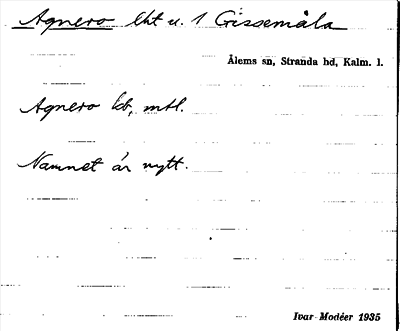 Agnero lht u. 1 Gissemåla
Ålems sn, Stranda hd, Kalm. l.
Agnero kb, mtl.
Namnet är nytt.
Ivar Modéer 1935